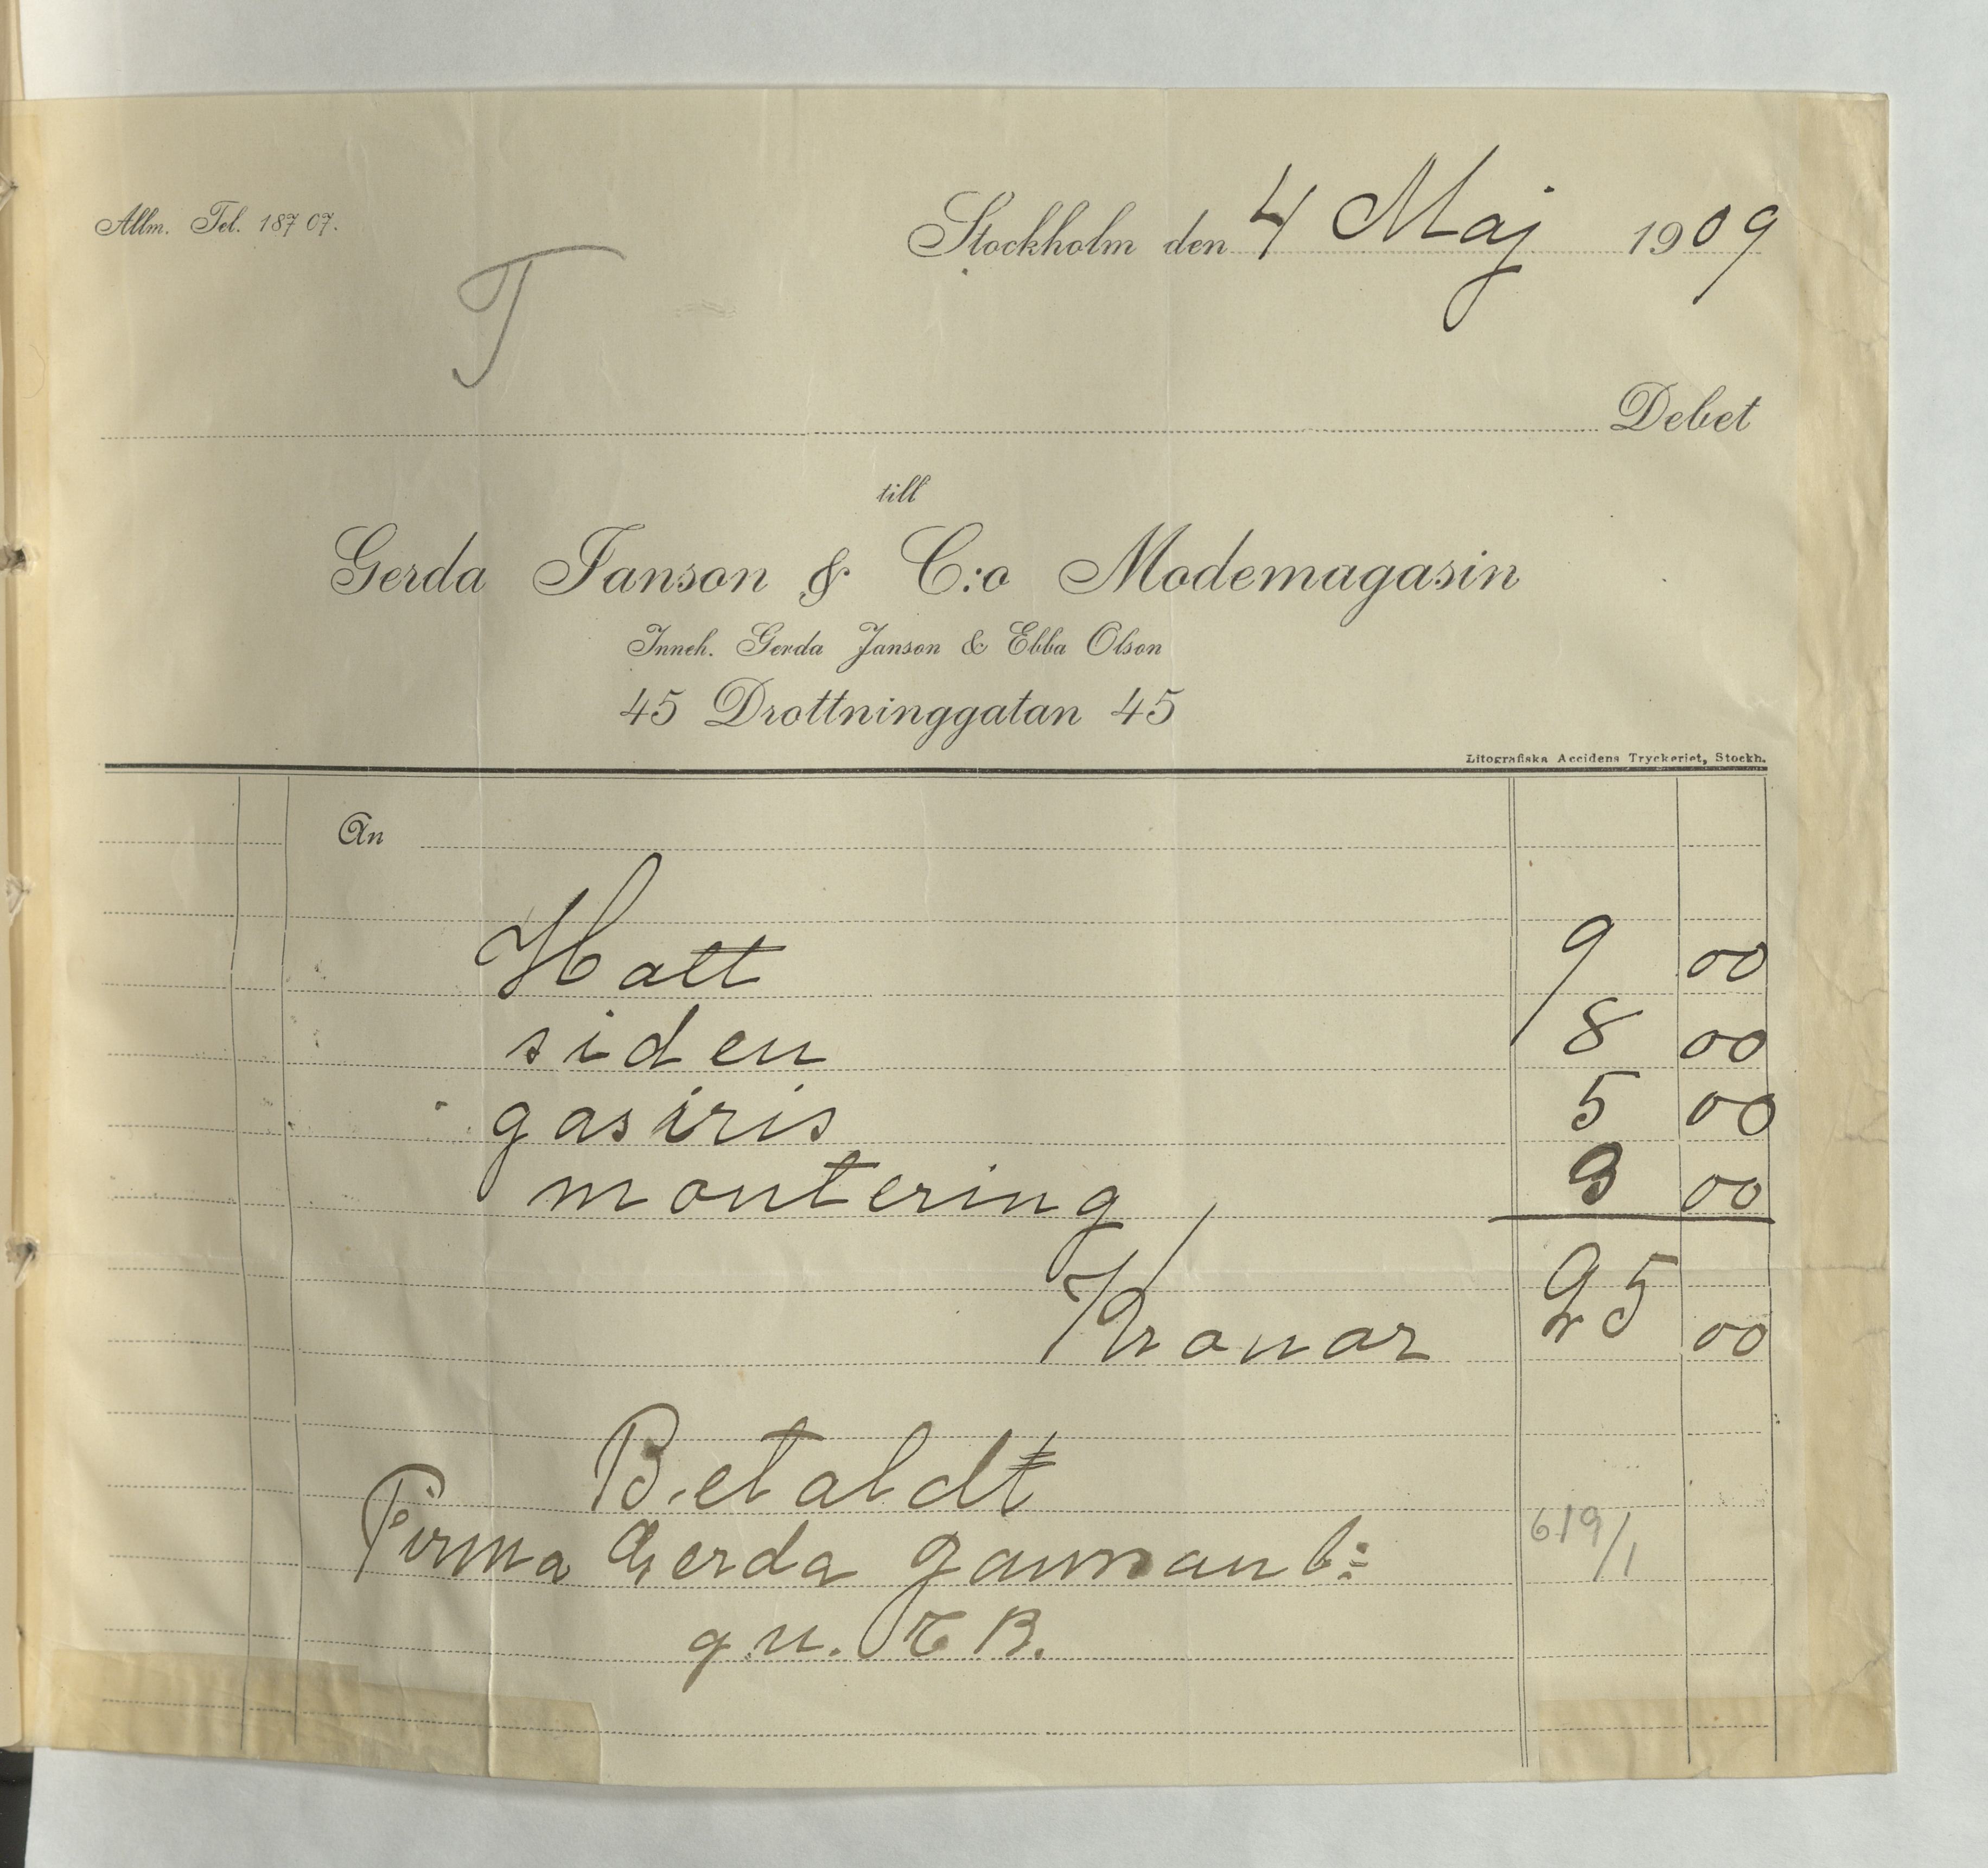 Allm. Tel. 187 07.
Stockholm den 4 Maj 1909
T
Debet
till
Gerda Janson & C:o Modemagasin
Inneh. Gerda Janson & Ebba Olson
45 Drottninggatan 45
Litografiska Accidens Tryckeriet, Stockh.
An
Hatt 9 00
siden 8 00
gasiris 5 00
montering 3 00
Kronor 25 00
Betaldt
Firma Gerda
619/1